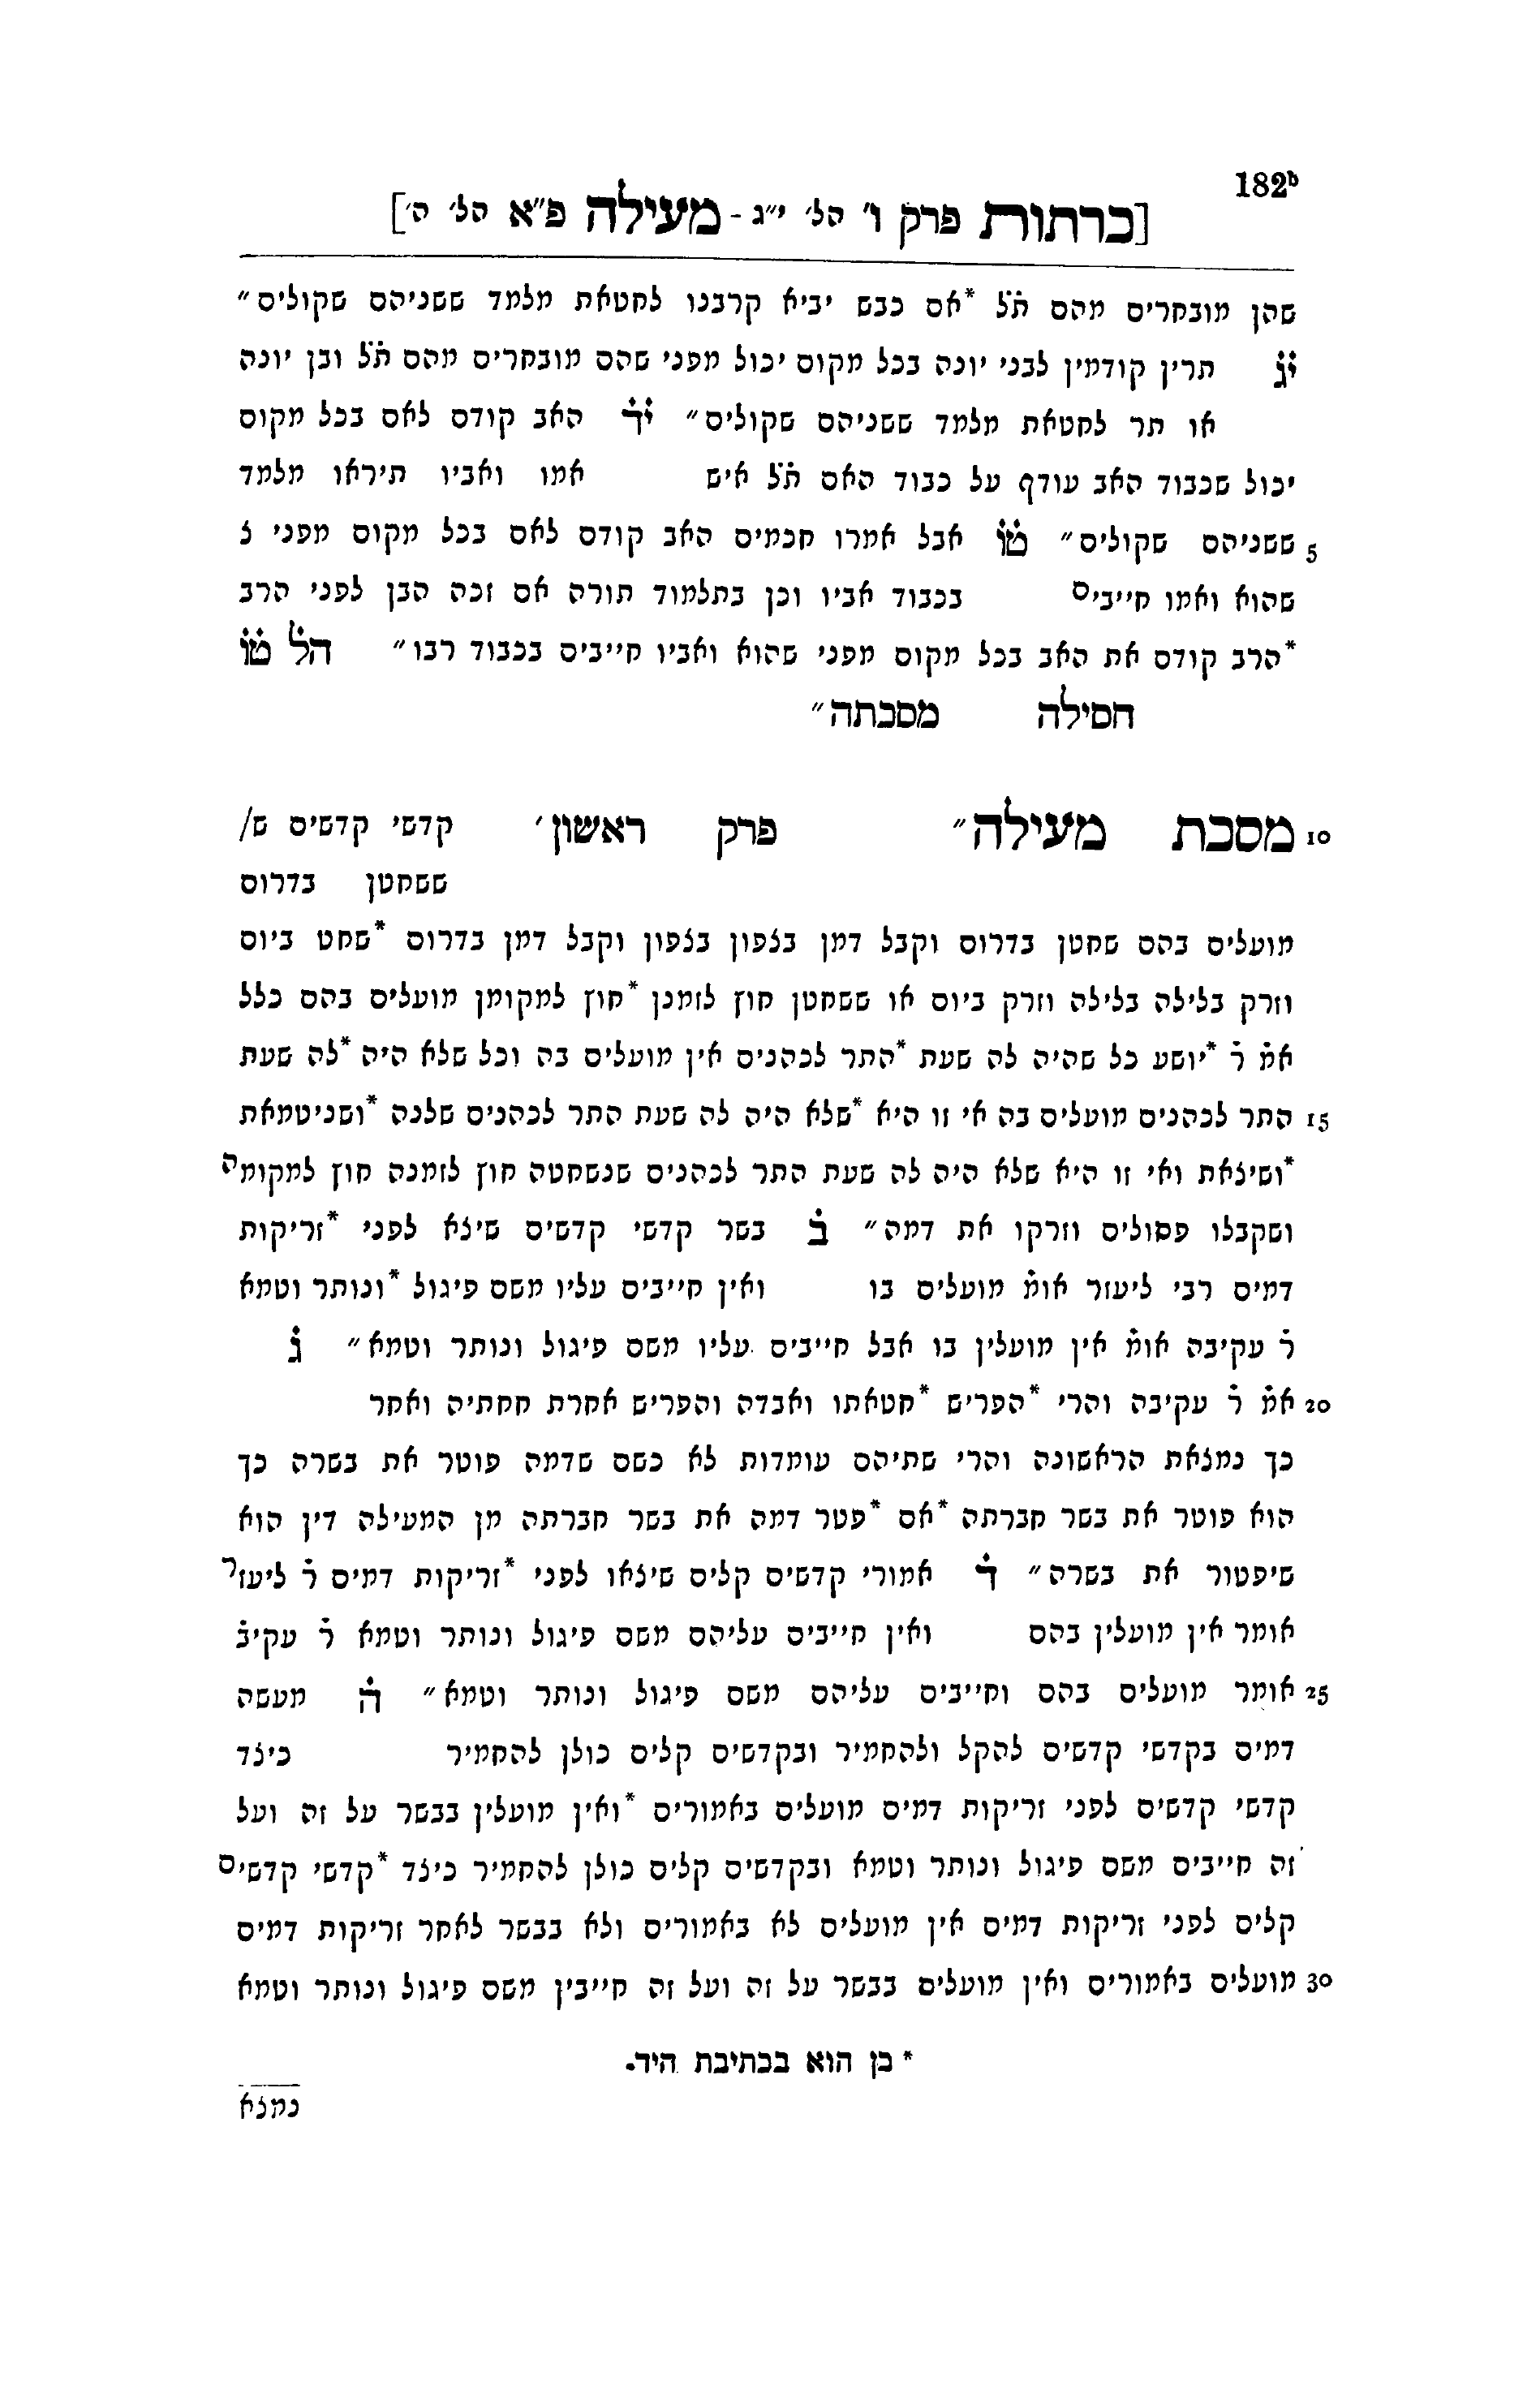 182b
[כרתות פרק ו' הל' י"ג - מעילה פ"א הל' ה']
שהן מובחרים מהם ת̇ל̇ *אם כבש יביא קרבנו לחטאת מלמד ששניהם שקולים״
יג תרין קודמין לבני יונה בכל מקום יכול מפני שהם מובחרים מהם ת̇ל̇ ובן יונה
או תר לחטאת מלמד ששניהם שקולים״ יד האב קודם לאם בכל מקום
יכול שכבוד האב עודף על כבוד האם ת̇ל̇ איש אמו ואביו תיראו מלמד
5 ששניהם שקולים״ טו אבל אמרו חכמים האב קודם לאם בכל מקום מפני נ
שהוא ואמו חייבים בכבוד אביו וכן בתלמוד תורה אם זכה הבן לפני הרב
*הרב קודם את האב בכל מקום מפני שהוא ואביו חייבים בכבוד רבו״ הל̇ טו
חסילה מסכתה״
10 מסכת מעילה״ פרק ראשון׳ קדשי קדשים ש/
ששחטן בדרום
מועלים בהם שחטן בדרום וקבל דמן בצפון בצפון וקבל דמן בדרום *שחט ביום
וזרק בלילה בלילה וזרק ביום או ששחטן חוץ לזמנן *חוץ למקומן מועלים בהם כלל
אמ̇ ר̇ *יושע כל שהיה לה שעת *התר לכהנים אין מועלים בה וכל שלא היה *לה שעת
15 התר לכהנים מועלים בה אי זו היא *שלא היה לה שעת התר לכהנים שלנה *ושניטמאת
*ושיצאת ואי זו היא שלא היה לה שעת התר לכהנים שנשחטה חוץ לזמנה חוץ למקומה
ושקבלו פסולים וזרקו את דמה״ ב בשר קדשי קדשים שיצא לפני *זריקות
דמים רבי ליעזר אומ̇ מועלים בו ואין חייבים עליו משם פיגול *ונותר וטמא
ר̇ עקיבה אומ̇ אין מועלין בו אבל חייבים עליו משם פיגול ונותר וטמא״ ג
20 אמ̇ ר̇ עקיבה והרי *הפריש *חטאתו ואבדה והפריש אחרת תחתיה ואחר
כך נמצאת הראשונה והרי שתיהם עומדות לא כשם שדמה פוטר את בשרה כך
הוא פוטר את בשר חברתה *אם *פטר דמה את בשר חברתה מן המעילה דין הוא
שיפטור את בשרה״ ד אמורי קדשים קלים שיצאו לפני *זריקות דמים ר̇ ליעזר
אומר אין מועלין בהם ואין חייבים עליהם משם פיגול ונותר וטמא ר̇ עקיב̇
25 אומר מועלים בהם וחייבים עליהם משם פיגול ונותר וטמא״ ה מעשה
דמים בקדשי קדשים להקל ולהחמיר ובקדשים קלים כולן להחמיר כיצד
קדשי קדשים לפני זריקות דמים מועלים באמורים *ואין מועלין בבשר על זה ועל
זה חייבים משם פיגול ונותר וטמא ובקדשים קלים כולן להחמיר כיצד *קדשי קדשים
קלים לפני זריקות דמים אין מועלים לא באמורים ולא בבשר לאחר זריקות דמים
30 מועלים באמורים ואין מועלים בבשר על זה ועל זה חייבין משם פיגול ונותר וטמא
* כן הוא בכתיבת היד.
נמצא